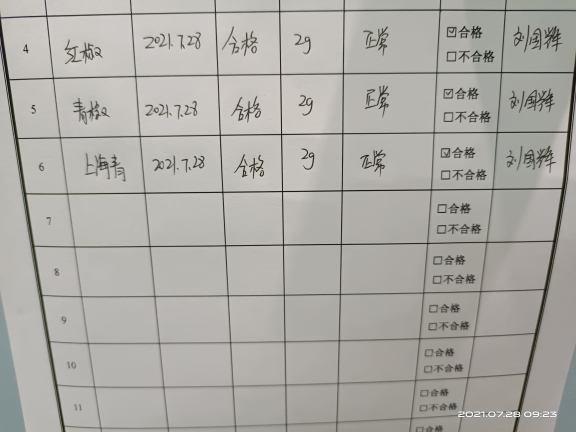 4 红椒 2021.7.28 合格 2g 正常 ☑合格 刘国辉
☐不合格
5 青椒 2021.7.28 合格 2g 正常 ☑合格 刘国辉
☐不合格
6 上海青 2021.7.28 合格 2g 正常 ☑合格 刘国辉
☐不合格
7 ☐合格
☐不合格
8 ☐合格
☐不合格
9 ☐合格
☐不合格
10 ☐合格
☐不合格
11 ☐合格
☐不合格
2021.07.28 09:23
☐合格